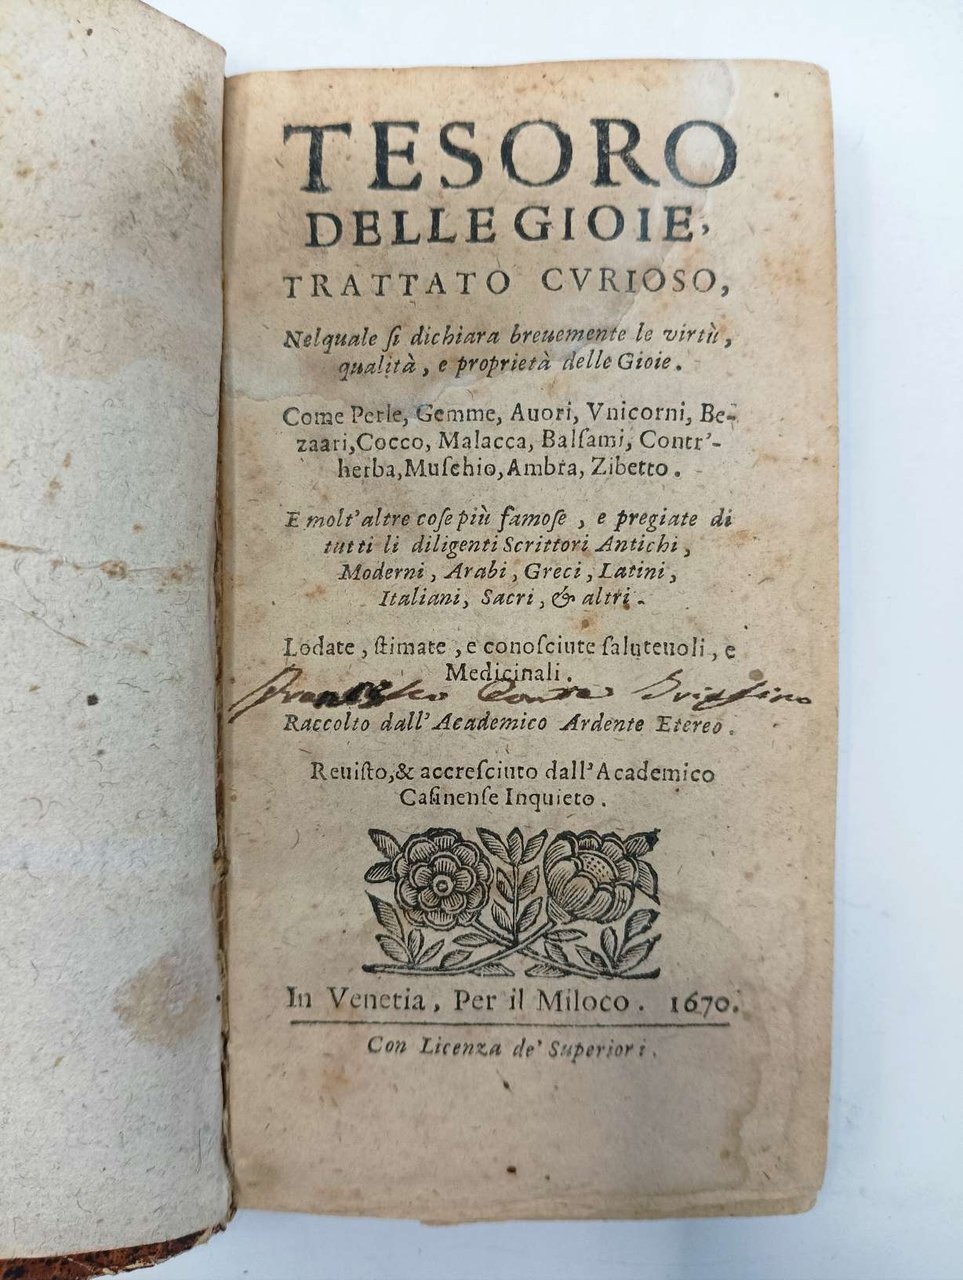 TESORO
DELLE GIOIE,
TRATTATO CVRIOSO,
Nelquale ſi dichiara breuemente le virtù,
qualità, e proprietà delle Gioie.
Come Perle, Gemme, Auori, Vnicorni, Be-
zaari, Cocco, Malacca, Balſami, Contr'-
herba, Muſchio, Ambra, Zibetto.
E molt'altre coſe più famoſe, e pregiate di
tutti li diligenti Scrittori Antichi,
Moderni, Arabi, Greci, Latini,
Italiani, Sacri, & altri.
Lodate, ſtimate, e conoſciute ſaluteuoli, e
Medicinali.
Raccolto dall'Academico Ardente Etereo.
Reuiſto, & accreſciuto dall'Academico
Caſinenſe Inquieto.
In Venetia, Per il Miloco. 1670.
Con Licenza de' Superiori.